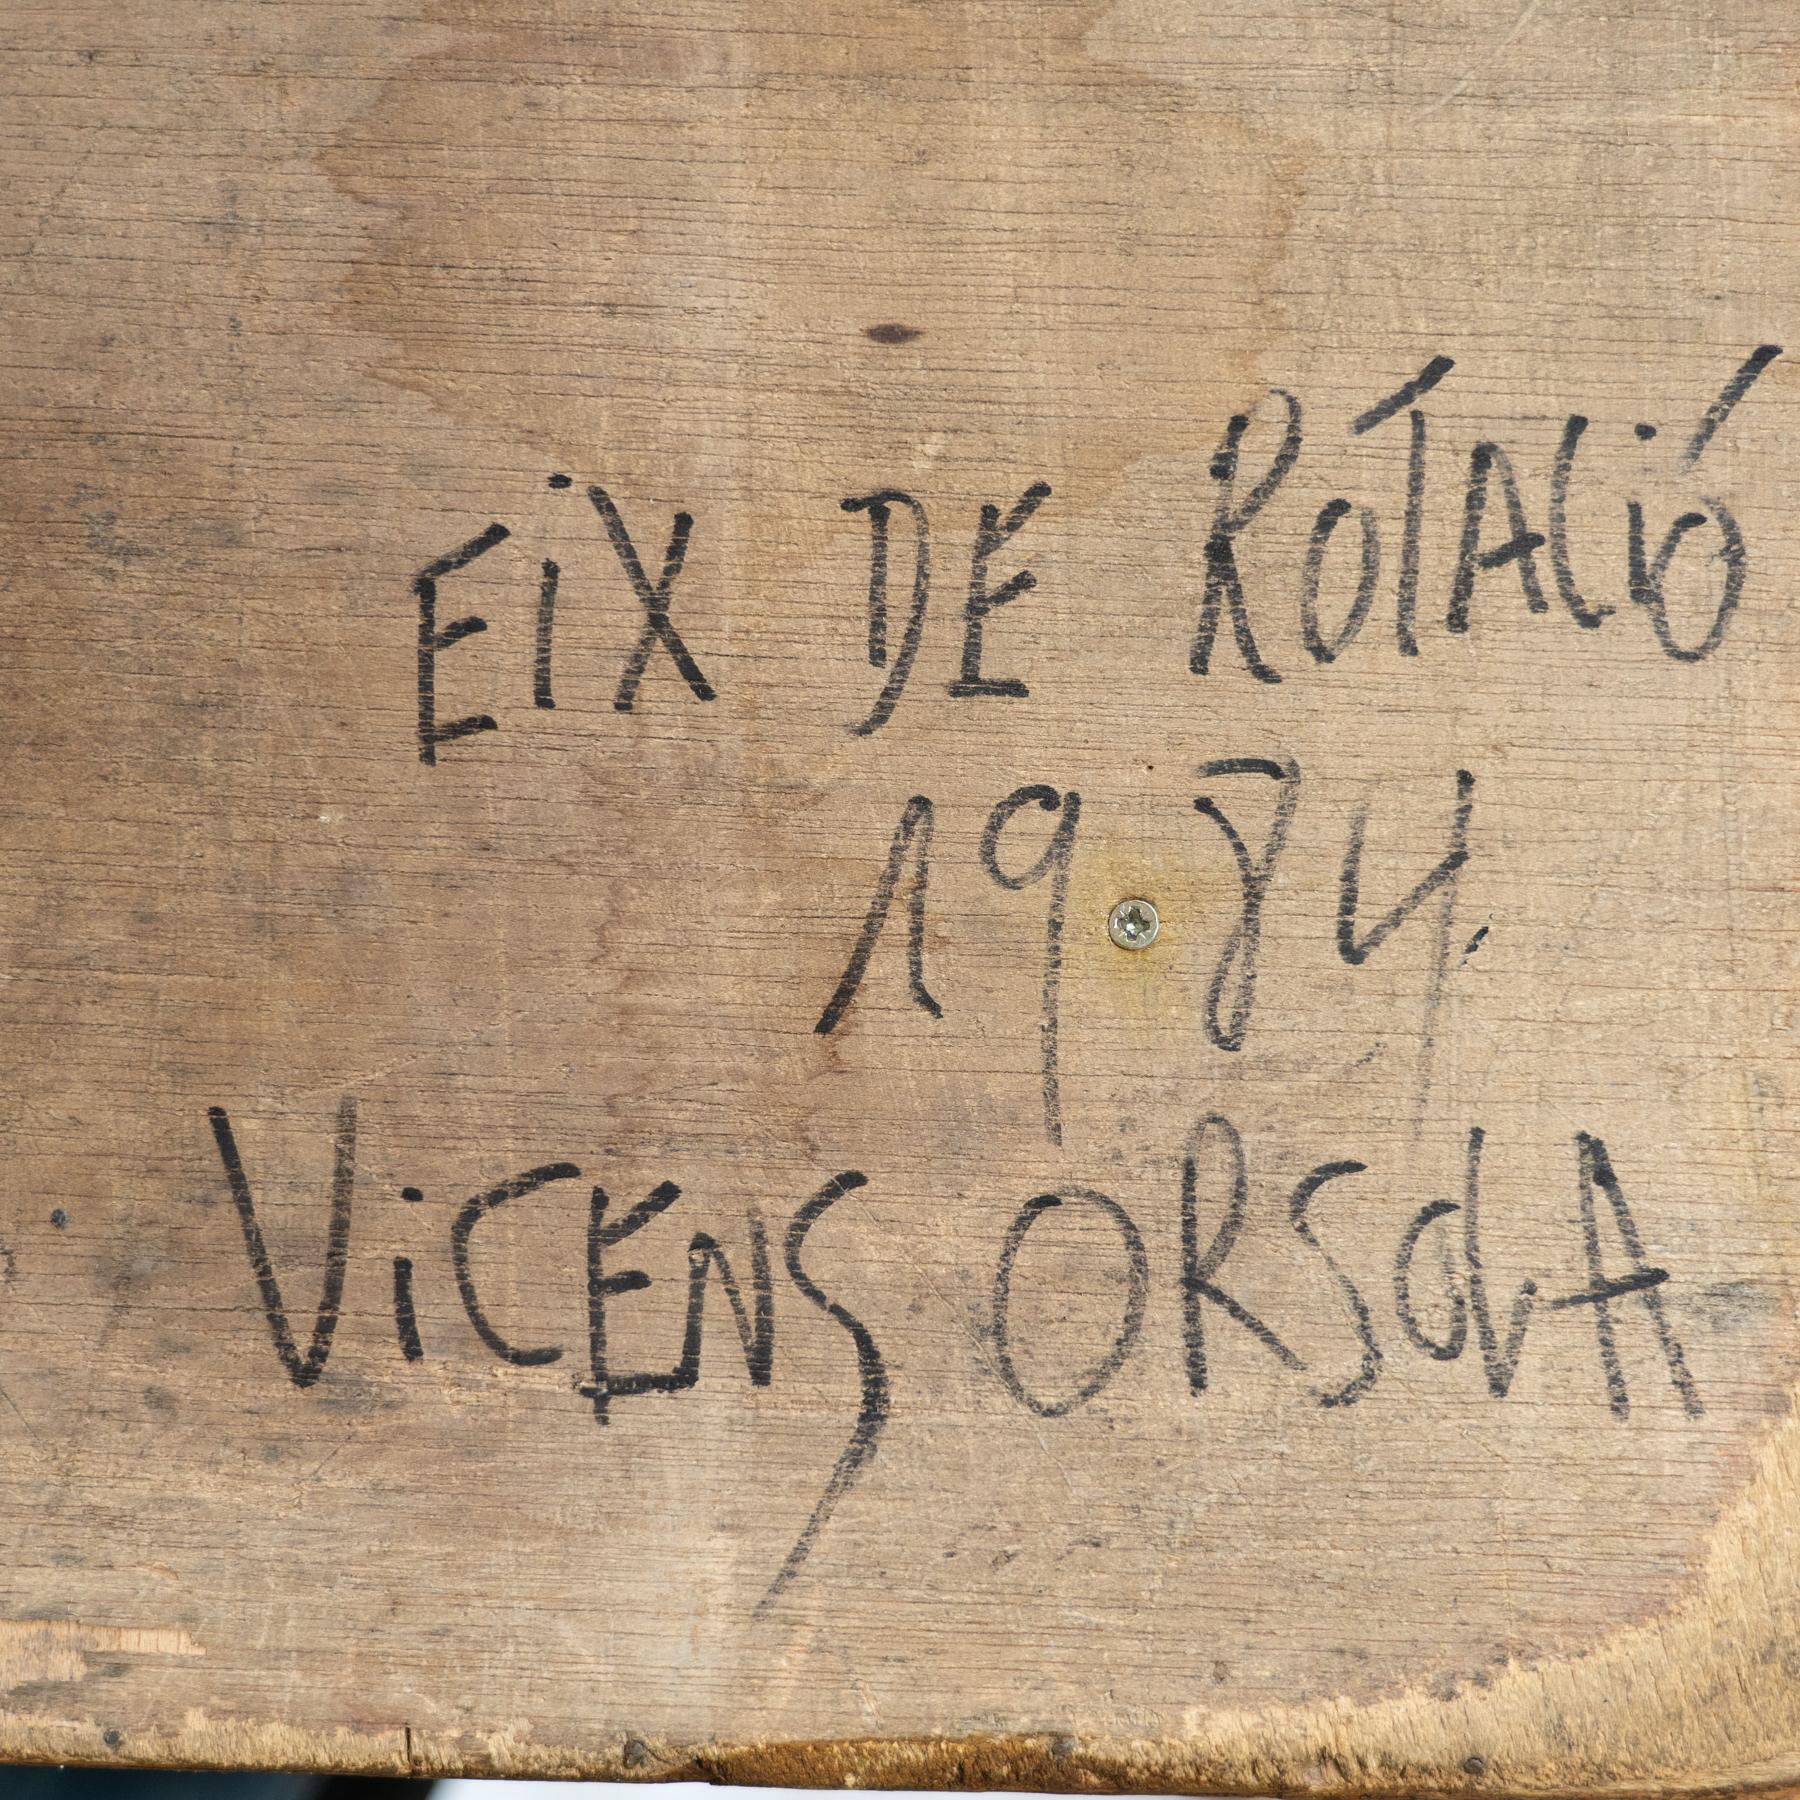 EiX DE ROTACIÓ
1984.
ViCENS ORSOLA